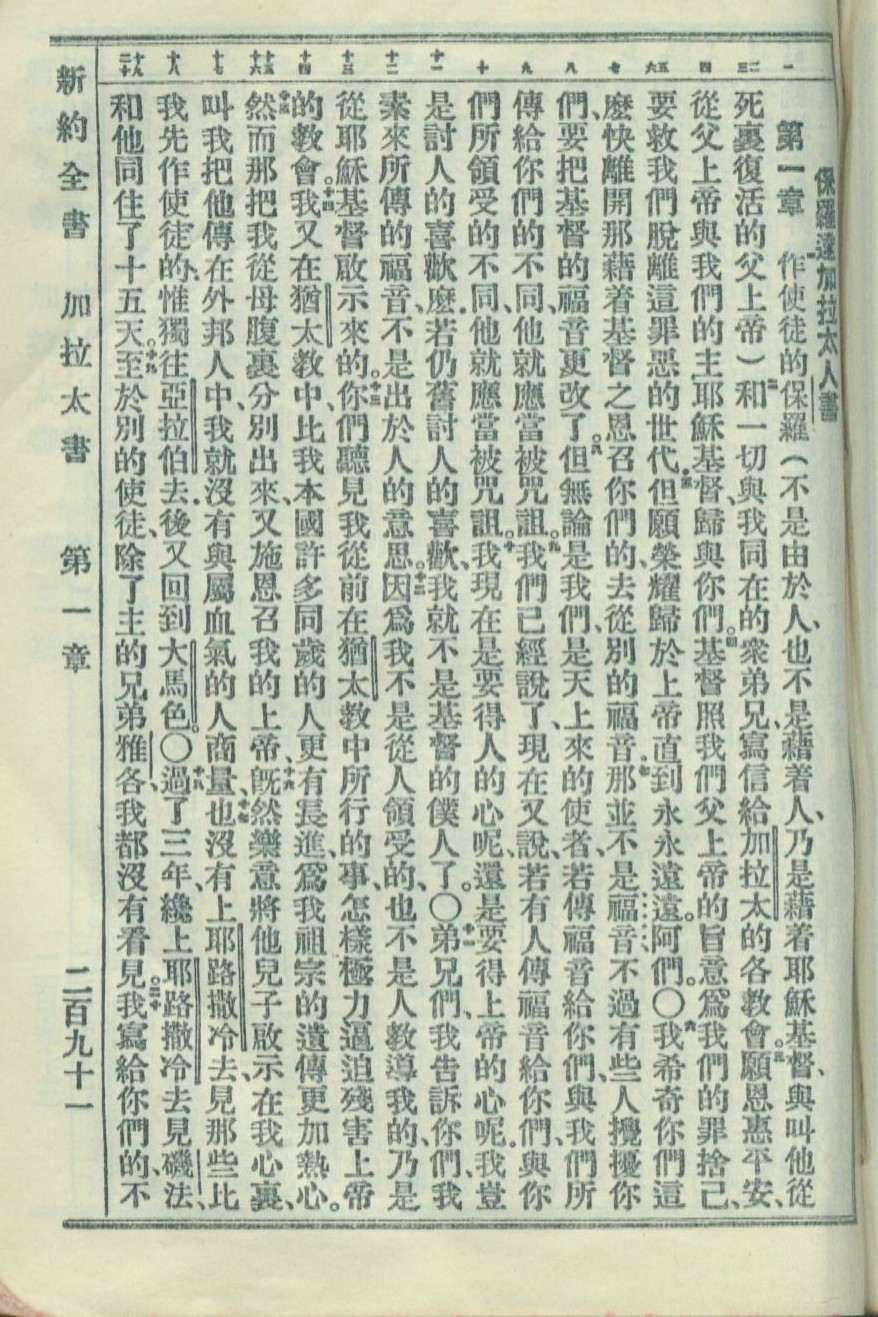 保羅達加拉太人書
第一章 作使徒的保羅（不是由於人、也不是藉着人、乃是藉着耶穌基督、與叫他從
死裏復活的父上帝）和一切與我同在的衆弟兄寫信給加拉太的各教會。願恩惠平安、
從父上帝與我們的主耶穌基督、歸與你們。基督照我們父上帝的旨意爲我們的罪捨己、
要救我們脫離這罪惡的世代。但願榮耀歸於上帝直到永永遠遠。阿們。〇我希奇你們這
麽快離開那藉着基督之恩召你們的、去從別的福音。那並不是福音、不過有些人攪擾你
們、要把基督的福音更改了。但無論是我們、是天上來的使者、若傳福音給你們、與我們所
傳給你們的不同、他就應當被咒詛。我們已經說了、現在又說、若有人傳福音給你們、與你
們所領受的不同、他就應當被咒詛。我現在是要得人的心呢、還是要得上帝的心呢、我豈
是討人的喜歡麽、若仍舊討人的喜歡、我就不是基督的僕人了。〇弟兄們、我告訴你們、我
素來所傳的福音、不是出於人的意思。因爲我不是從人領受的、也不是人教導我的、乃是
從耶穌基督啟示來的。你們聽見我從前在猶太教中所行的事、怎樣極力逼迫殘害上帝
的教會。我又在猶太教中、比我本國許多同歲的人更有長進、爲我祖宗的遺傳更加熱心。
然而那把我從母腹裏分別出來、又施恩召我的上帝、旣然樂意將他兒子啟示在我心裏、
叫我把他傳在外邦人中、我就沒有與屬血氣的人商量、也沒有上耶路撒冷去、見那些比
我先作使徒的、惟獨往亞拉伯去、後又回到大馬色。〇過了三年、纔上耶路撒冷去見磯法、
和他同住了十五天。至於別的使徒、除了主的兄弟雅各、我都沒有看見。我寫給你們的、不
新約全書 加拉太書 第一章 二百九十一